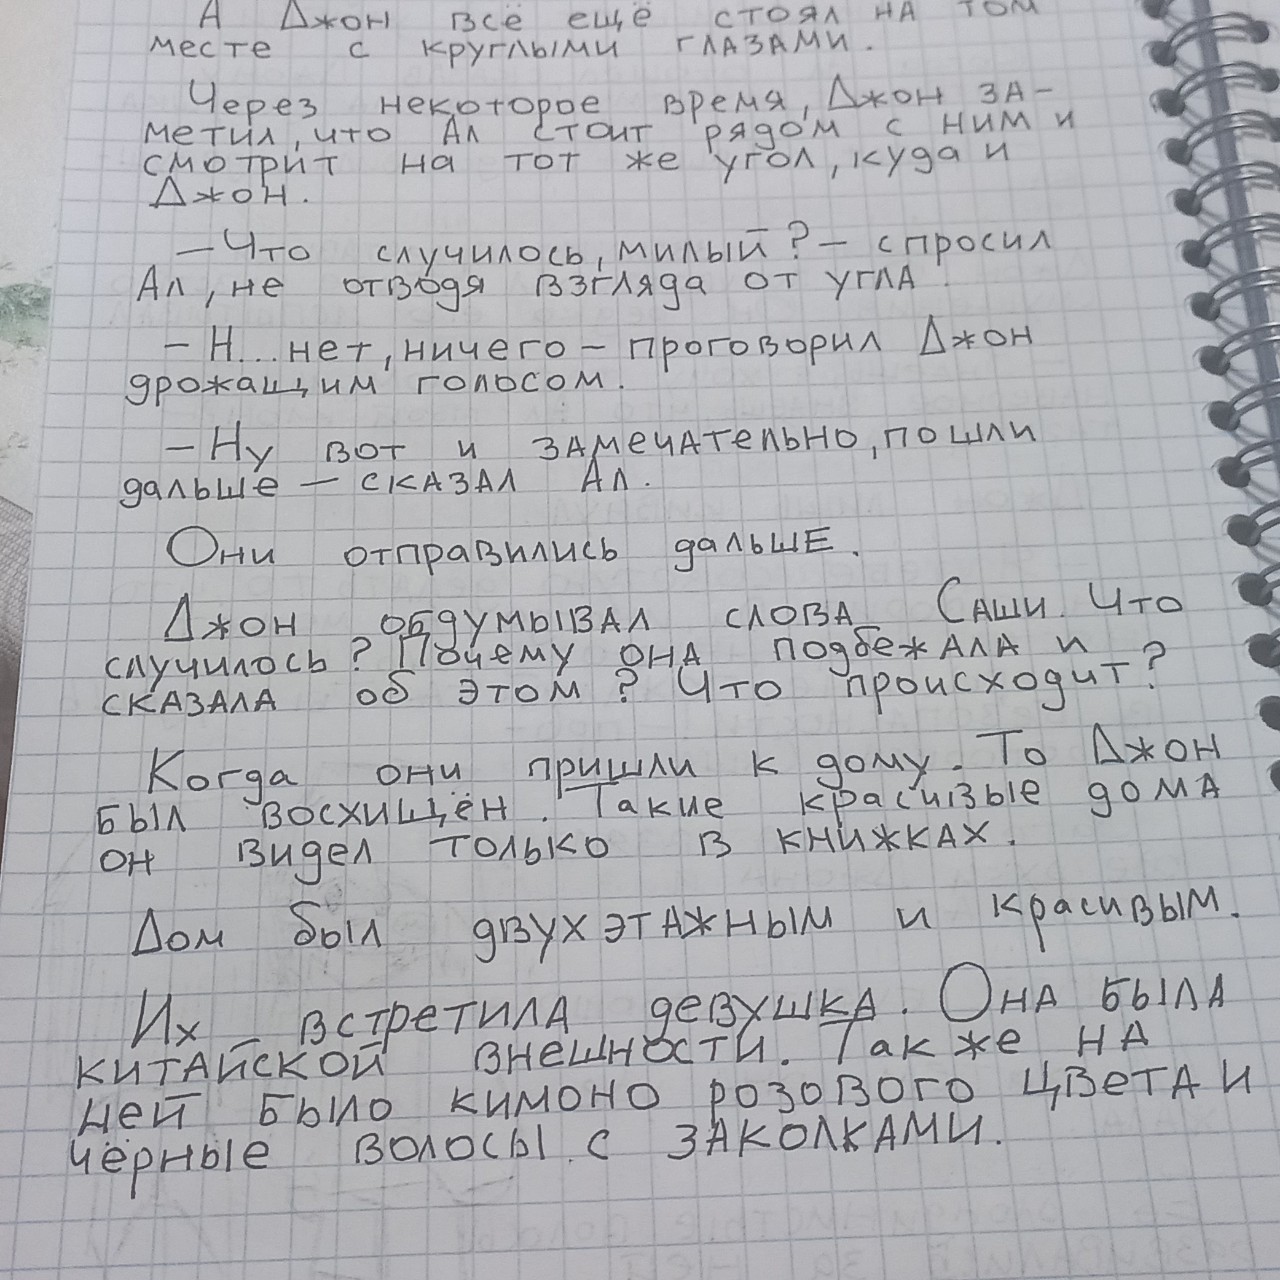 А Джон всё ещё стоял на том
месте с круглыми глазами.
Через некоторое время, Джон за-
метил, что Ал стоит рядом с ним и
смотрит на тот же угол, куда и
Джон.
— Что случилось, милый? — спросил
Ал, не отводя взгляда от угла.
— Н... нет, ничего — проговорил Джон
дрожащим голосом.
— Ну вот и замечательно, пошли
дальше — сказал Ал.
Они отправились дальше.
Джон обдумывал слова Саши. Что
случилось? Почему она подбежала и
сказала об этом? Что происходит?
Когда они пришли к дому. То Джон
был восхищён. Такие красивые дома
он видел только в книжках.
Дом был двухэтажным и красивым.
Их встретила девушка. Она была
китайской внешности. Так же на
ней было кимоно розового цвета и
чёрные волосы с заколками.